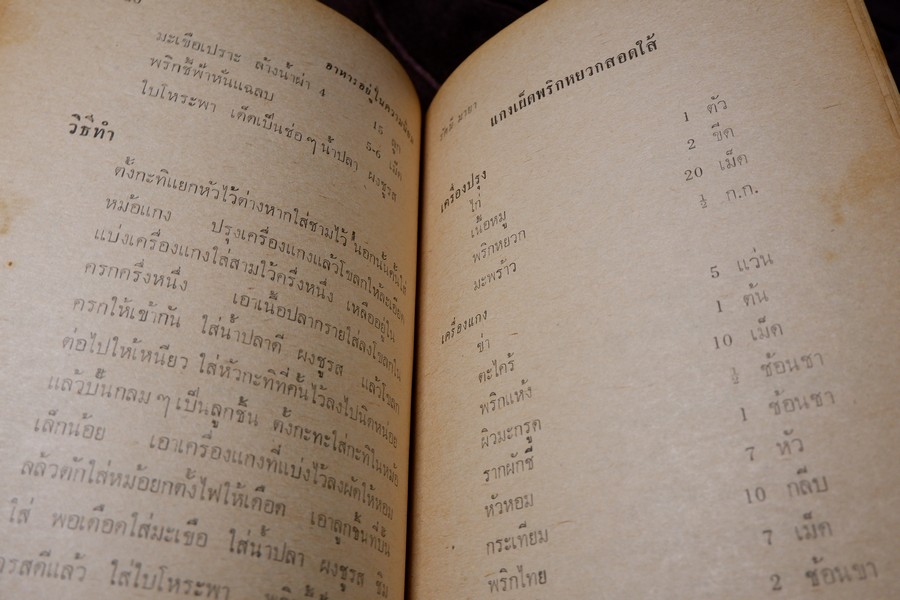 มะเขือเปราะ ล้างน้ำผ่า 4 15 ลูก
พริกชี้ฟ้าหั่นแฉลบ 5-6 เม็ด
ใบโหระพา เด็ดเป็นช่อ ๆ น้ำปลา ผงชูรส
วิธีทำ
ตั้งกะทิแยกหัวไว้ต่างหากใส่ชามไว้ นอกนั้นคั้นใส่
หม้อแกง ปรุงเครื่องแกงแล้วโขลกให้ละเอียด
แบ่งเครื่องแกงใส่สามไว้ครึ่งหนึ่ง เหลืออยู่ใน
ครกครึ่งหนึ่ง เอาเนื้อปลากรายใส่ลงโขลกใน
ครกให้เข้ากัน ใส่น้ำปลาดี ผงชูรส แล้วโขลก
ต่อไปให้เหนียว ใส่หัวกะทิที่คั้นไว้ลงไปนิดหน่อย
แล้วปั้นกลม ๆ เป็นลูกชิ้น ตั้งกะทะใส่กะทิในหม้อ
เล็กน้อย เอาเครื่องแกงที่แบ่งไว้ลงผัดให้หอม
แล้วตักใส่หม้อยกตั้งไฟให้เดือด เอาลูกชิ้นที่ปั้น
ใส่ พอเดือดใส่มะเขือ ใส่น้ำปลา ผงชูรส ชิม
รสดีแล้ว ใส่ใบโหระพา
อาหารอยู่ในความนิยม
แกงเผ็ดพริกหยวกสอดใส้
เครื่องปรุง
ไก่ 1 ตัว
เนื้อหมู 2 ขีด
พริกหยวก 20 เม็ด
มะพร้าว ½ ก.ก.
เครื่องแกง
ข่า 5 แว่น
ตะไคร้ 1 ต้น
พริกแห้ง 10 เม็ด
ผิวมะกรูด ½ ช้อนชา
รากผักชี 1 ช้อนชา
หัวหอม 7 หัว
กระเทียม 10 กลีบ
พริกไทย 7 เม็ด
2 ช้อนชา